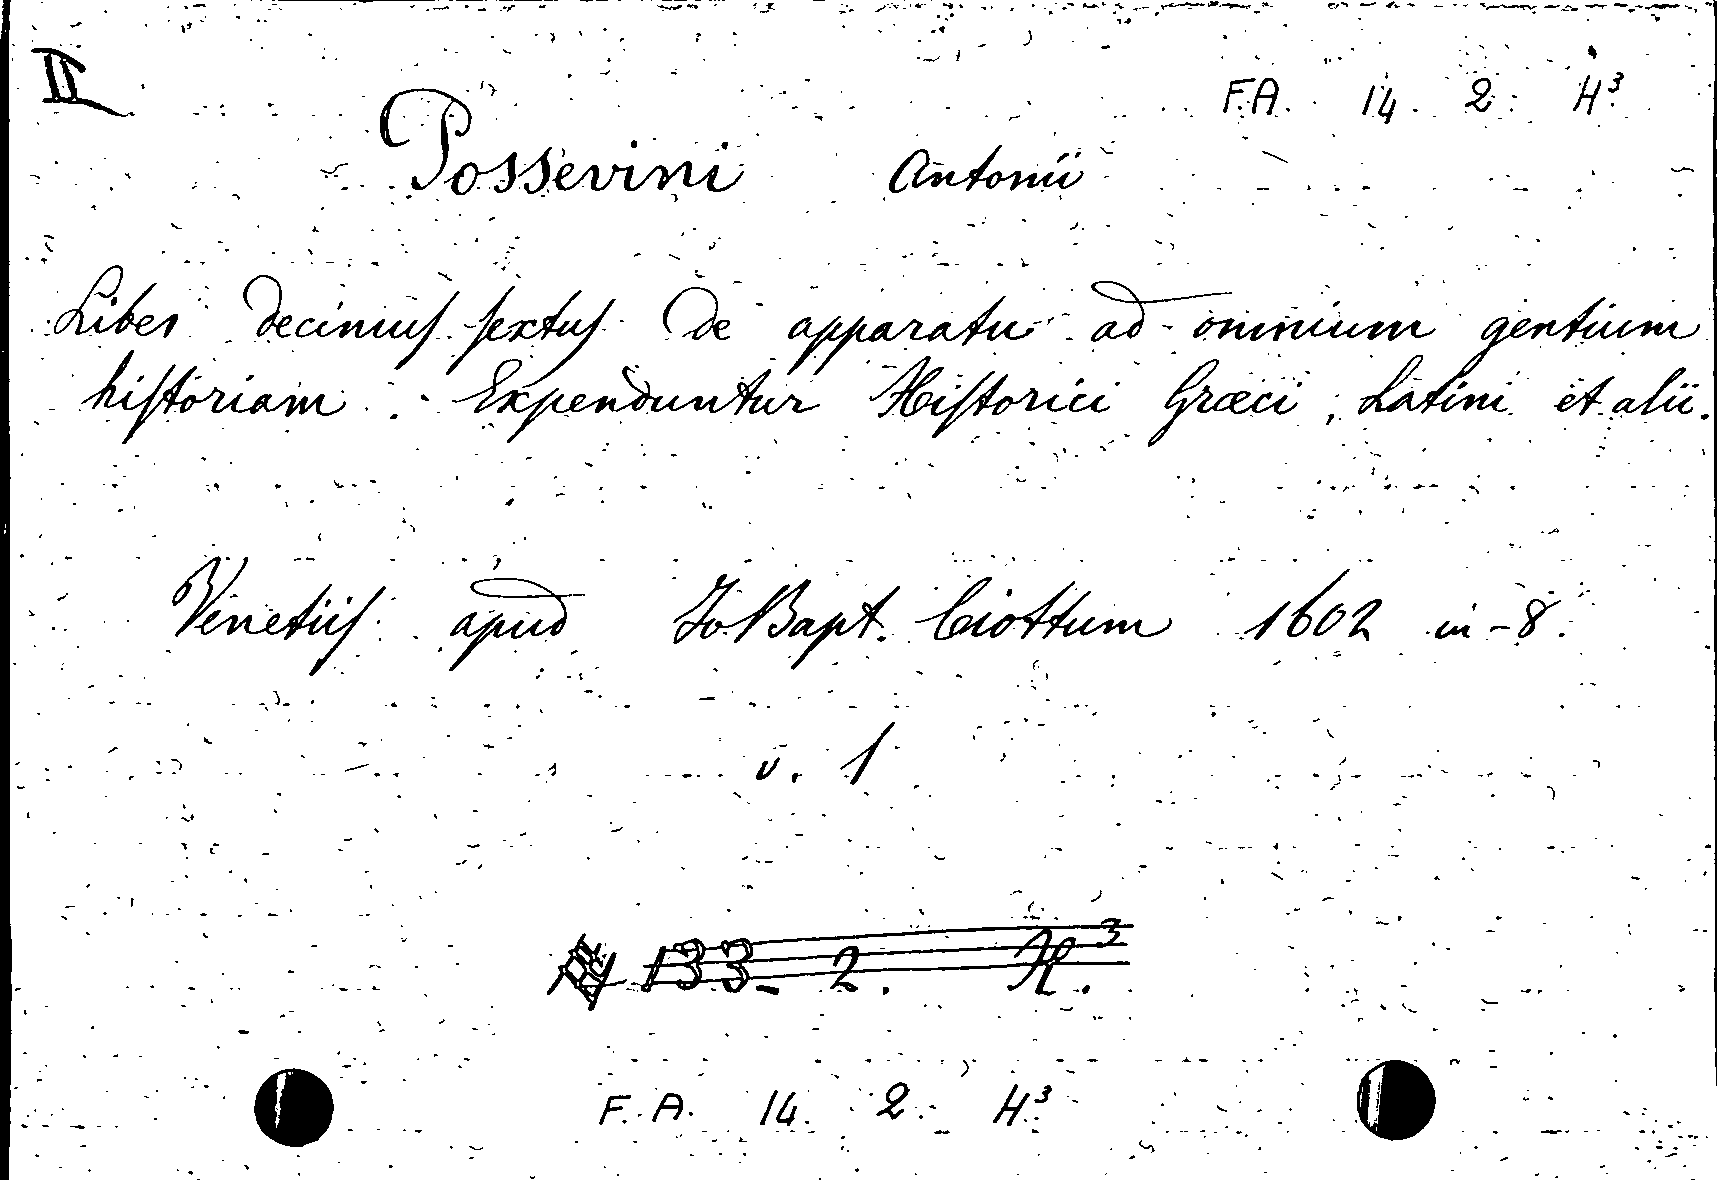 II
F.A. 14. 2. H³
Possevini Antonii
Liber decimuſ ſextuſ de apparatu ad omnium gentium
hiſtoriam. Expenduntur Hiſtorici Græci, Latini et alii.
Venetiiſ apud Jo Bapt. Ciottum 1602 in-8.
v. 1
133- 2. H.³
F.A. 14. 2. H³